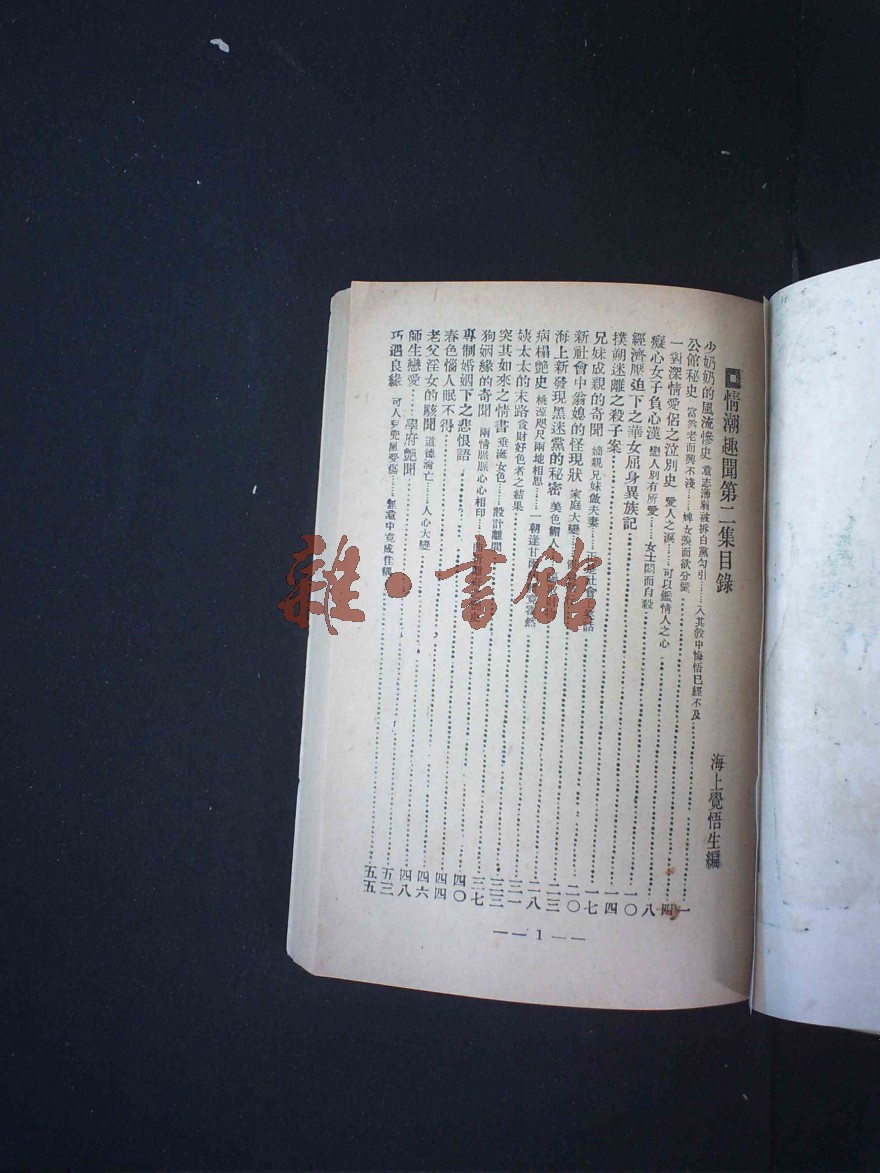 情潮趣聞第二集目錄
海上覺悟生編
少奶奶的風流慘史 意志薄弱被拆白黨勾引……入其彀中悔悟已經不及
公館秘史 富翁老而興不淺……婢女羨而欲分愛 一
一對深情愛侶之泣別史 愛人之淚……可以鑑情人之心 四
癡心女子負心漢 戀人別有所愛……女士悶而自殺 八
經濟壓迫下之華女屈身異族記 一〇
撲朔迷離之殺子案 一四
兄妹成親的奇聞 嫡親兄妹做夫妻……正是社會 話 一七
新社會中翁媳的怪現狀 家庭大變 二〇
海上新發現黑迷黨的秘密 美色媚人 二三
病榻艷史 桃源咫尺兩地相思……一朝逢甘雨 霍然 二八
姨太太的末路 貪財好色者之結果 三一
突其如來之情書 垂涎女色……設計離間 三三
狗姻緣的奇聞 兩情脈脈心心相印 三七
專制婚姻下之悲恨語 四〇
春色惱人眠不得 四四
老父淫女的駭聞 道德淪亡……人心大變 四六
師生戀愛……學府艷聞 四八
巧遇良緣 可人兒兜風受傷……無意中竟成佳耦 五三
五五
—— 1 ——
雜·書館